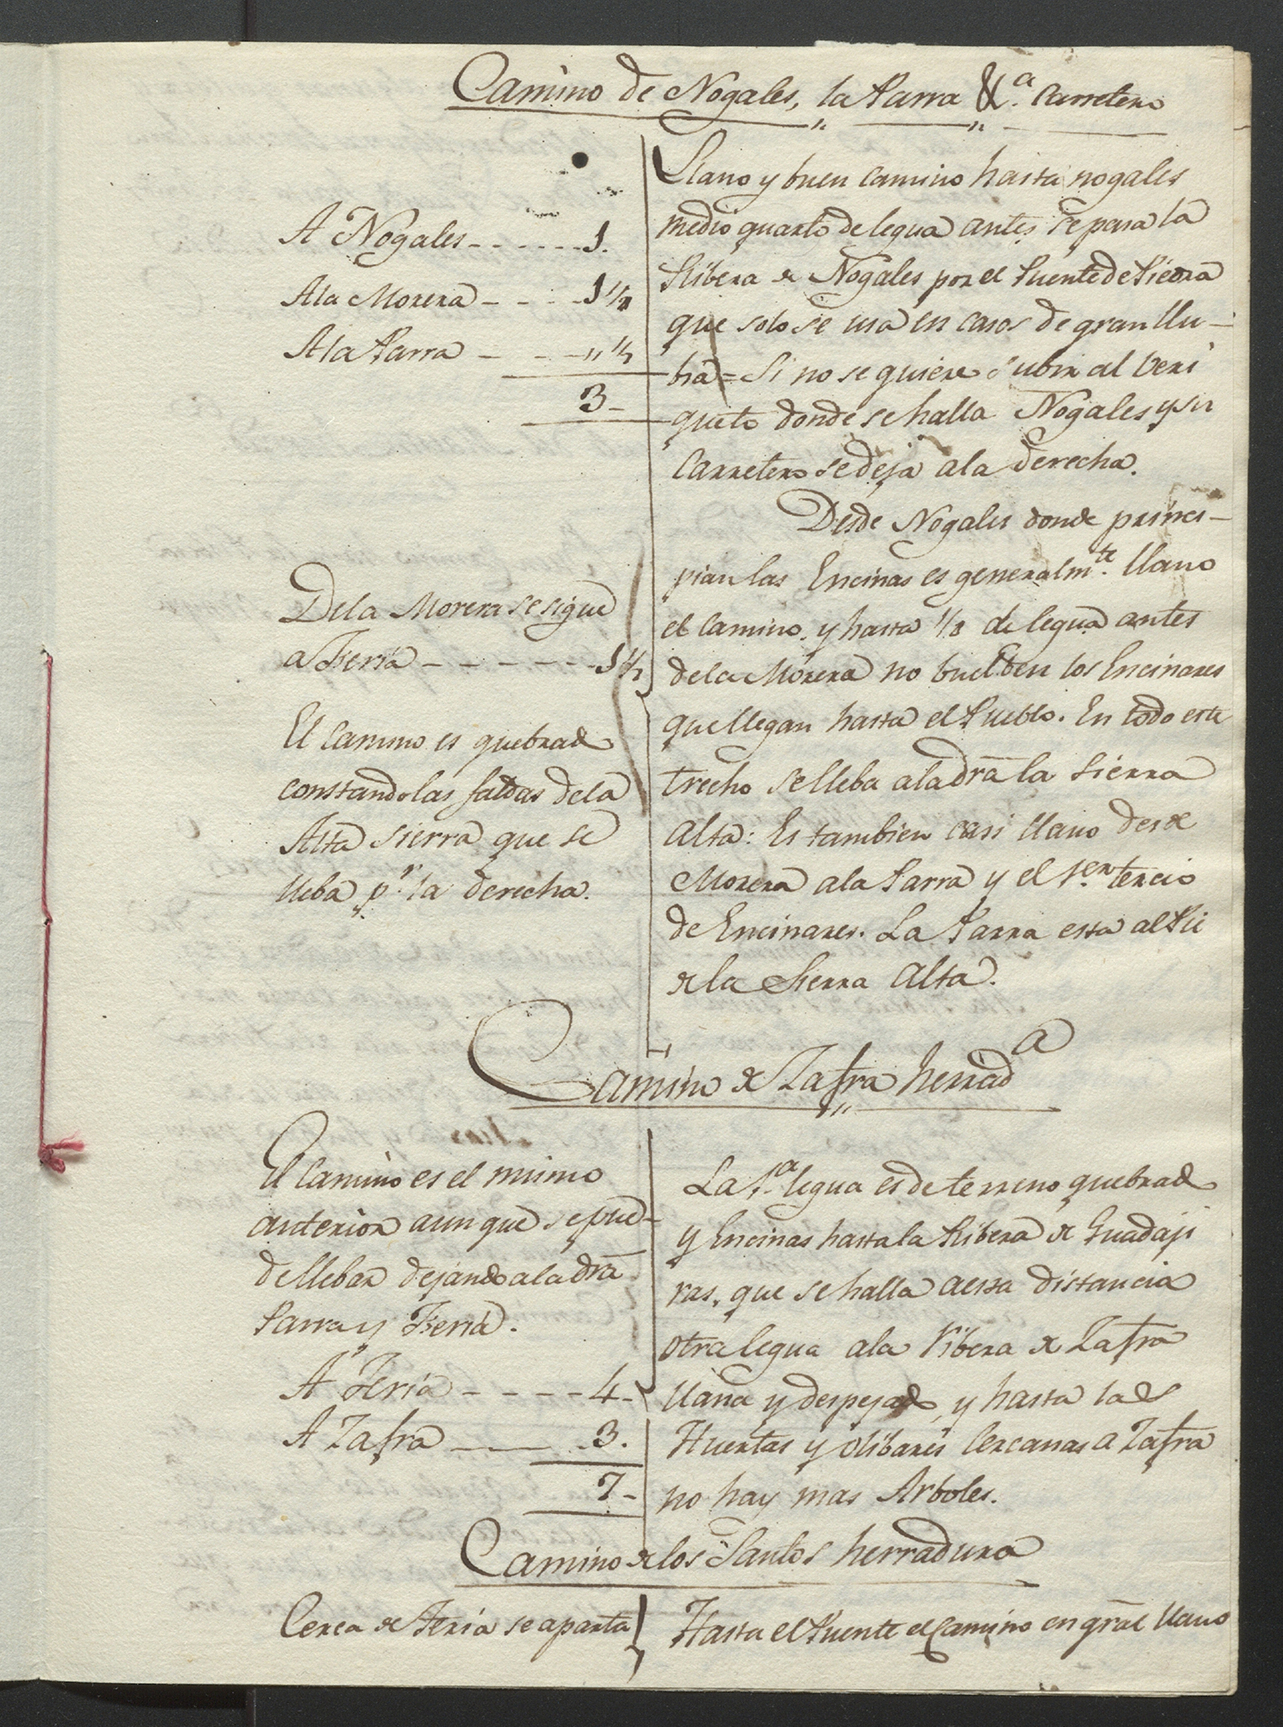 Camino de Nogales, la Parra &.ª Carretero
A Nogales - - - - - - 1.
A la Morera - - - - 1 1/2
A la Parra - - - - „ 1/2
3 -
Llano y buen camino hasta nogales
medio quarto de legua antes se pasa la
Ribera de Nogales por el Puente de Piedra
que solo se usa en casos de gran llu-
bia = Si no se quiere subir al Veri
queto donde se halla Nogales y su
Carretero se deja a la derecha.
Desde Nogales donde princi-
pian las Encinas es generalm.te llano
el camino, y hasta 1/8 de legua antes
de la Morera no buelben los Encinares
que llegan hasta el Pueblo. En todo este
trecho se lleba a la dra la Sierra
Alta: Es tambien casi llano desde
Morera a la Parra y el 1.er tercio
de Encinares. La Parra esta al Pie
de la Sierra Alta.
De la Morera se sigue
a Feria - - - - - - - 1 1/2
El Camino es quebrado
constando las faldas de la
Alta Sierra que se
lleba p.r la derecha.
Camino de Zafra herrad.a
El Camino es el mismo
anterior aunque se pue-
de llebar dejando a la dra
Parra y Feria.
A Feria - - - - - 4 -
A Zafra - - - 3.
7 -
La 1.ª legua es de terreno quebrado
y Encinas hasta la Ribera de Guadaji
ras, que se halla a esta distancia
otra legua a la Ribera de Zafra
llana y despejada, y hasta las
Huertas y Olibares Cercanas a Zafra
no hay mas Arboles.
Camino de los Santos herradura
Cerca de Feria se aparta
Hasta el Puente el Camino en gral llano